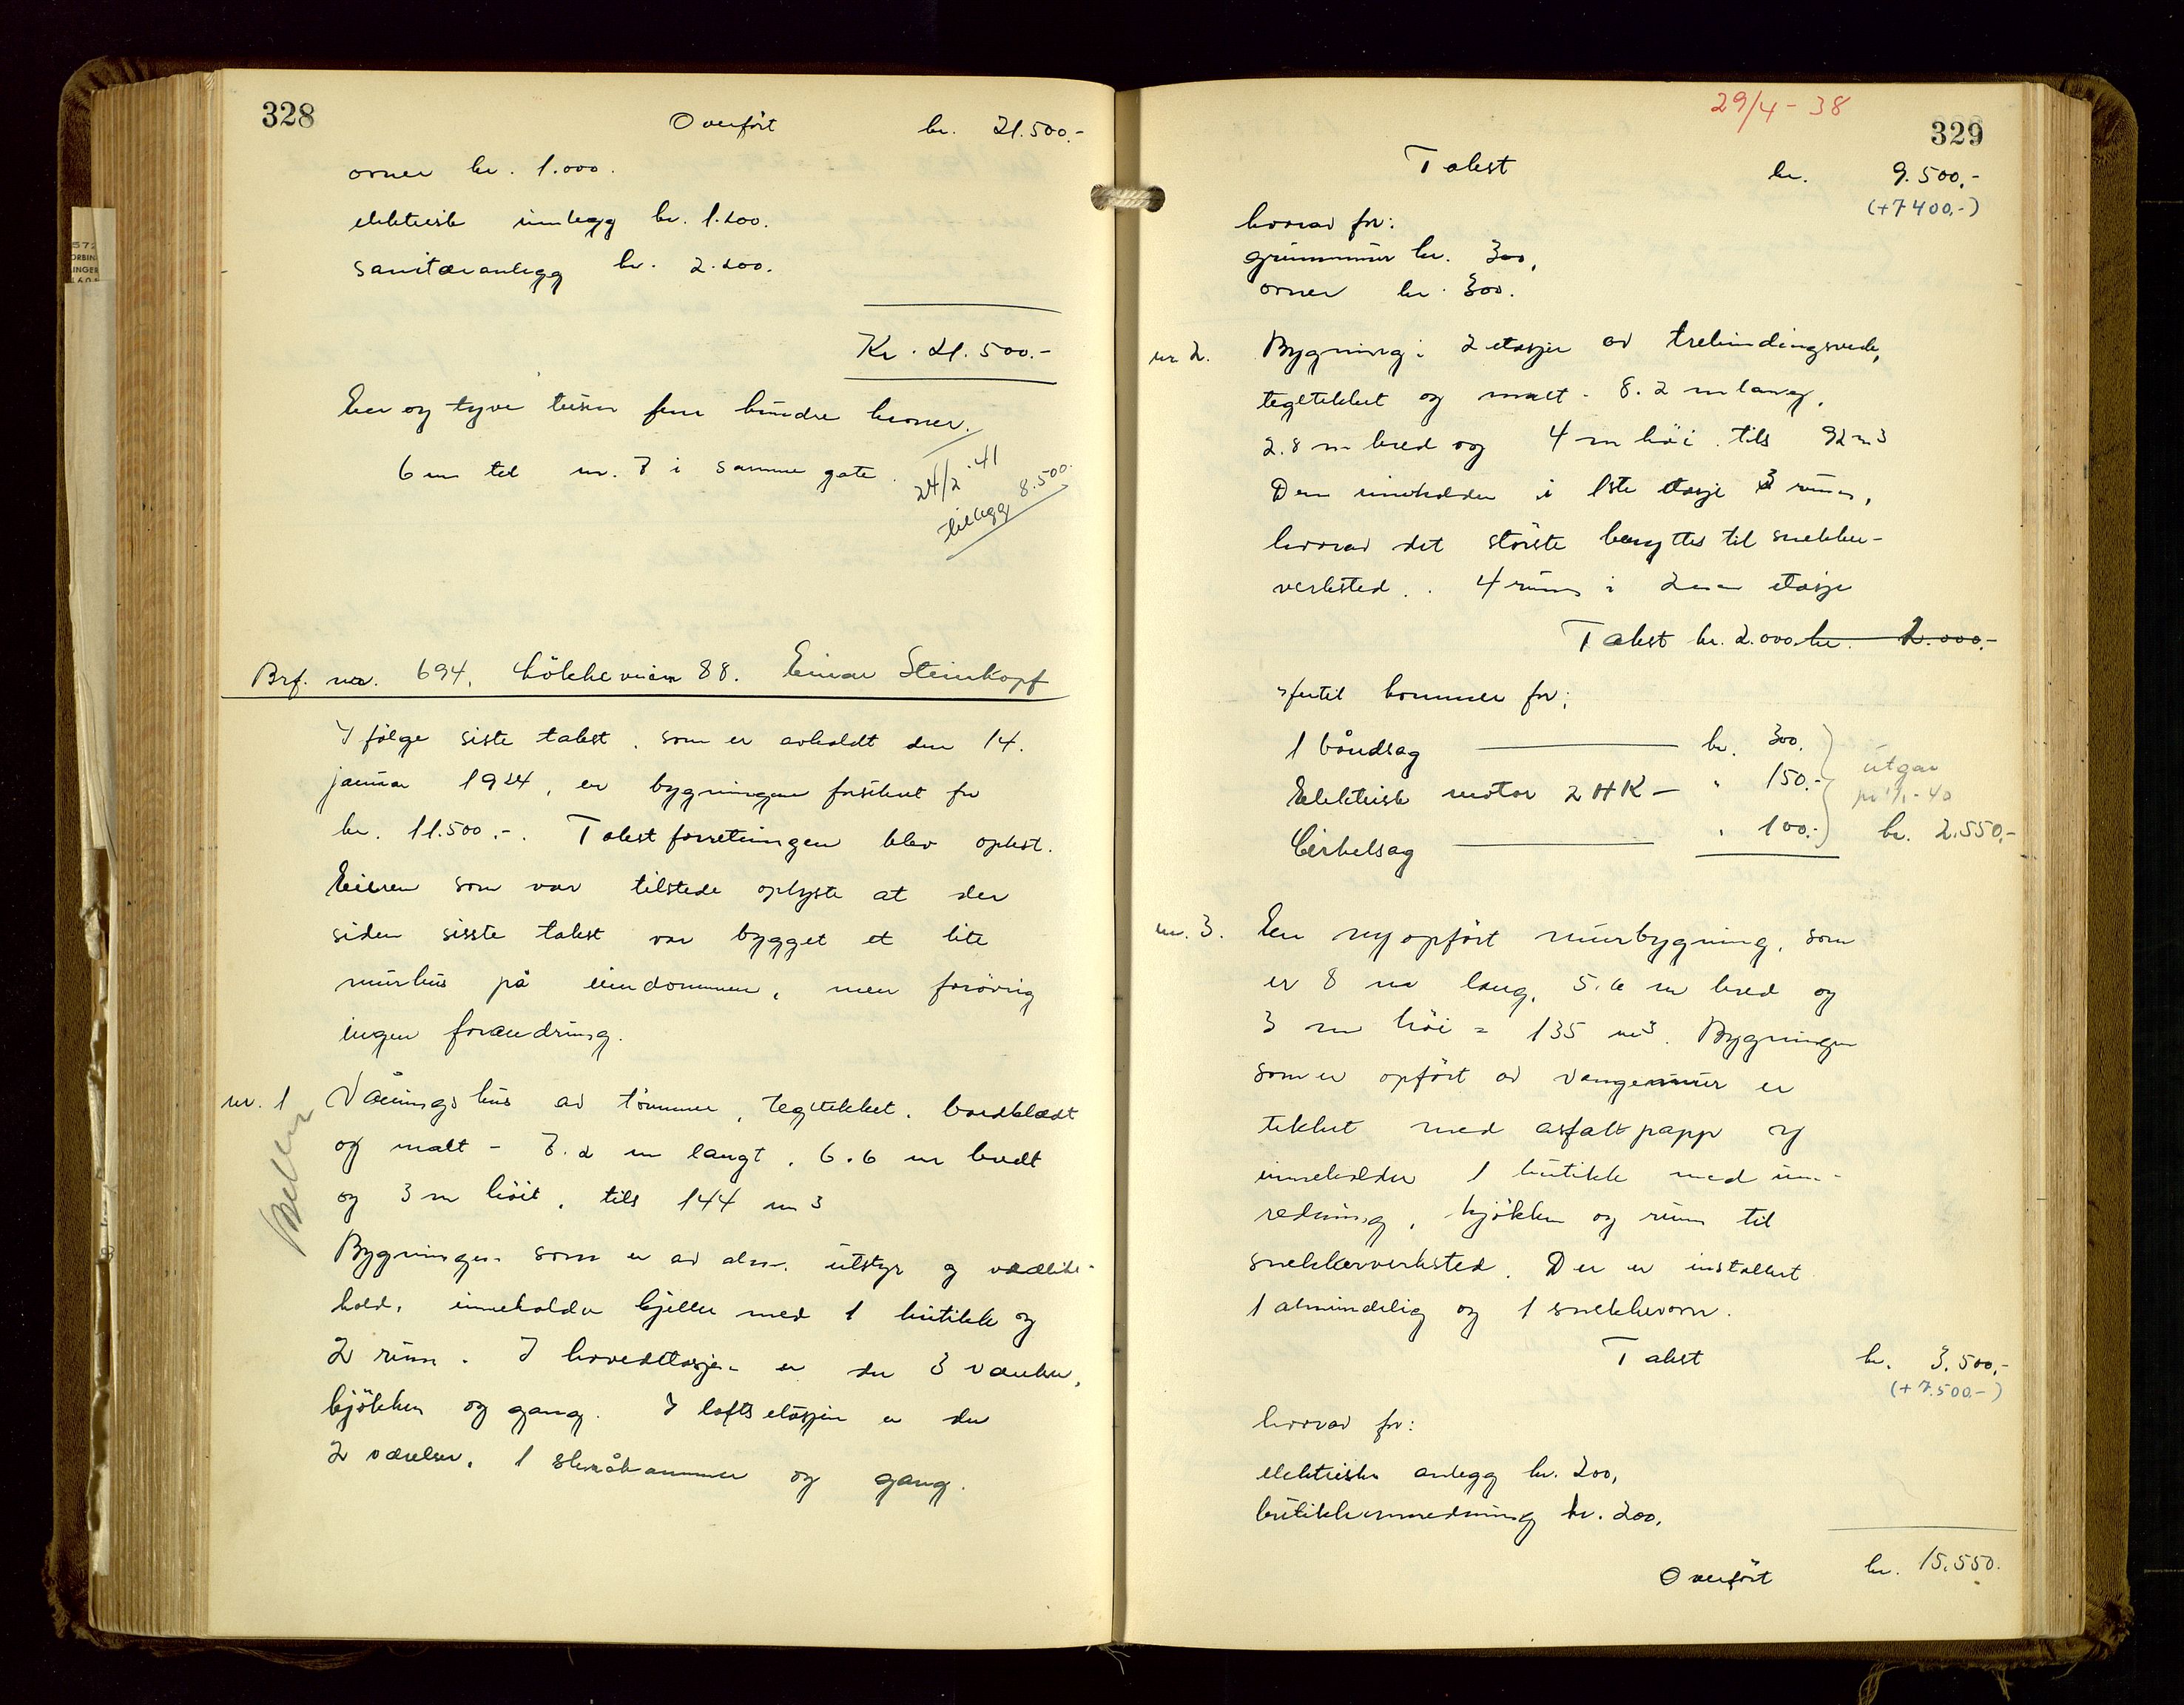 328
Overført kr. 21.500.-
ovner kr. 1.000.
elektrisk innlegg kr. 1.200.
sanitæranlegg kr. 2.200.
Kr. 21.500.-
En og tyve tusen fem hundre kroner.
6 m til nr. 7 i samme gate.
24/2.41
tillegg 8.500.
Brf. nr. 694. Løkkeveien 88. Einar Steinkopf
I følge siste takst, som er avholdt den 14.
januar 1924, er bygningen forsikret for
kr. 11.500.-. Takstforretningen blev oplest.
Eieren som var tilstede oplyste at der
siden sisste takst var bygget et lite
murhus på eiendommen, men forøvrig
ingen forandring.
nr. 1 Våningshus av tømmer, tegltekket, bordklædt
og malt - 7.2 m langt, 6.6 m bredt
og 3 m høit, tils 144 m3
Bygningen som er av alm. utstyr og vedlike-
hold, inneholder kjeller med 1 butikk og
2 rum. I hovedetasjen er der 3 værelser,
kjøkken og gang. I loftsetasjen er der
2 værelser, 1 skråkammer og gang.
29/4 - 38
329
Takst kr. 9.500.-
(+7400.-)
hvorav for:
grunnmur kr. 300,
ovner kr. 300.
nr. 2. Bygning i 2 etasjer av trebindingsverk,
tegltekket og malt - 8.2 m lang,
2.8 m bred og 4 m høi. tils 92 m3
Den inneholder i 1ste etasje 3 rum,
hvorav det største benyttes til snekker-
verksted. 4 rum i 2nen etasje
Takst kr. 2.000. kr. 2.000.-
hertil kommer for:
1 båndsag kr. 300.
Elektrisk motor 2 HK - " 150.-
utgår
pr 1/1 - 40
Cirkelsag " 100.- kr. 2.550.-
nr. 3. En nyopført murbygning, som
er 8 m lang, 5.6 m bred og
3 m høi = 135 m3. Bygningen
som er opført av vangemur er
tekket med asfaltpapp og
inneholder 1 butikk med inn-
redning, kjøkken og rum til
snekkerverksted. Der er installert
1 almindelig og 1 snekkerovn.
Takst kr. 3.500.-
(+7.500.-)
hvorav for:
elektrisk anlegg kr. 200,
butikkinnredning kr. 200,
Overført kr. 15.550.